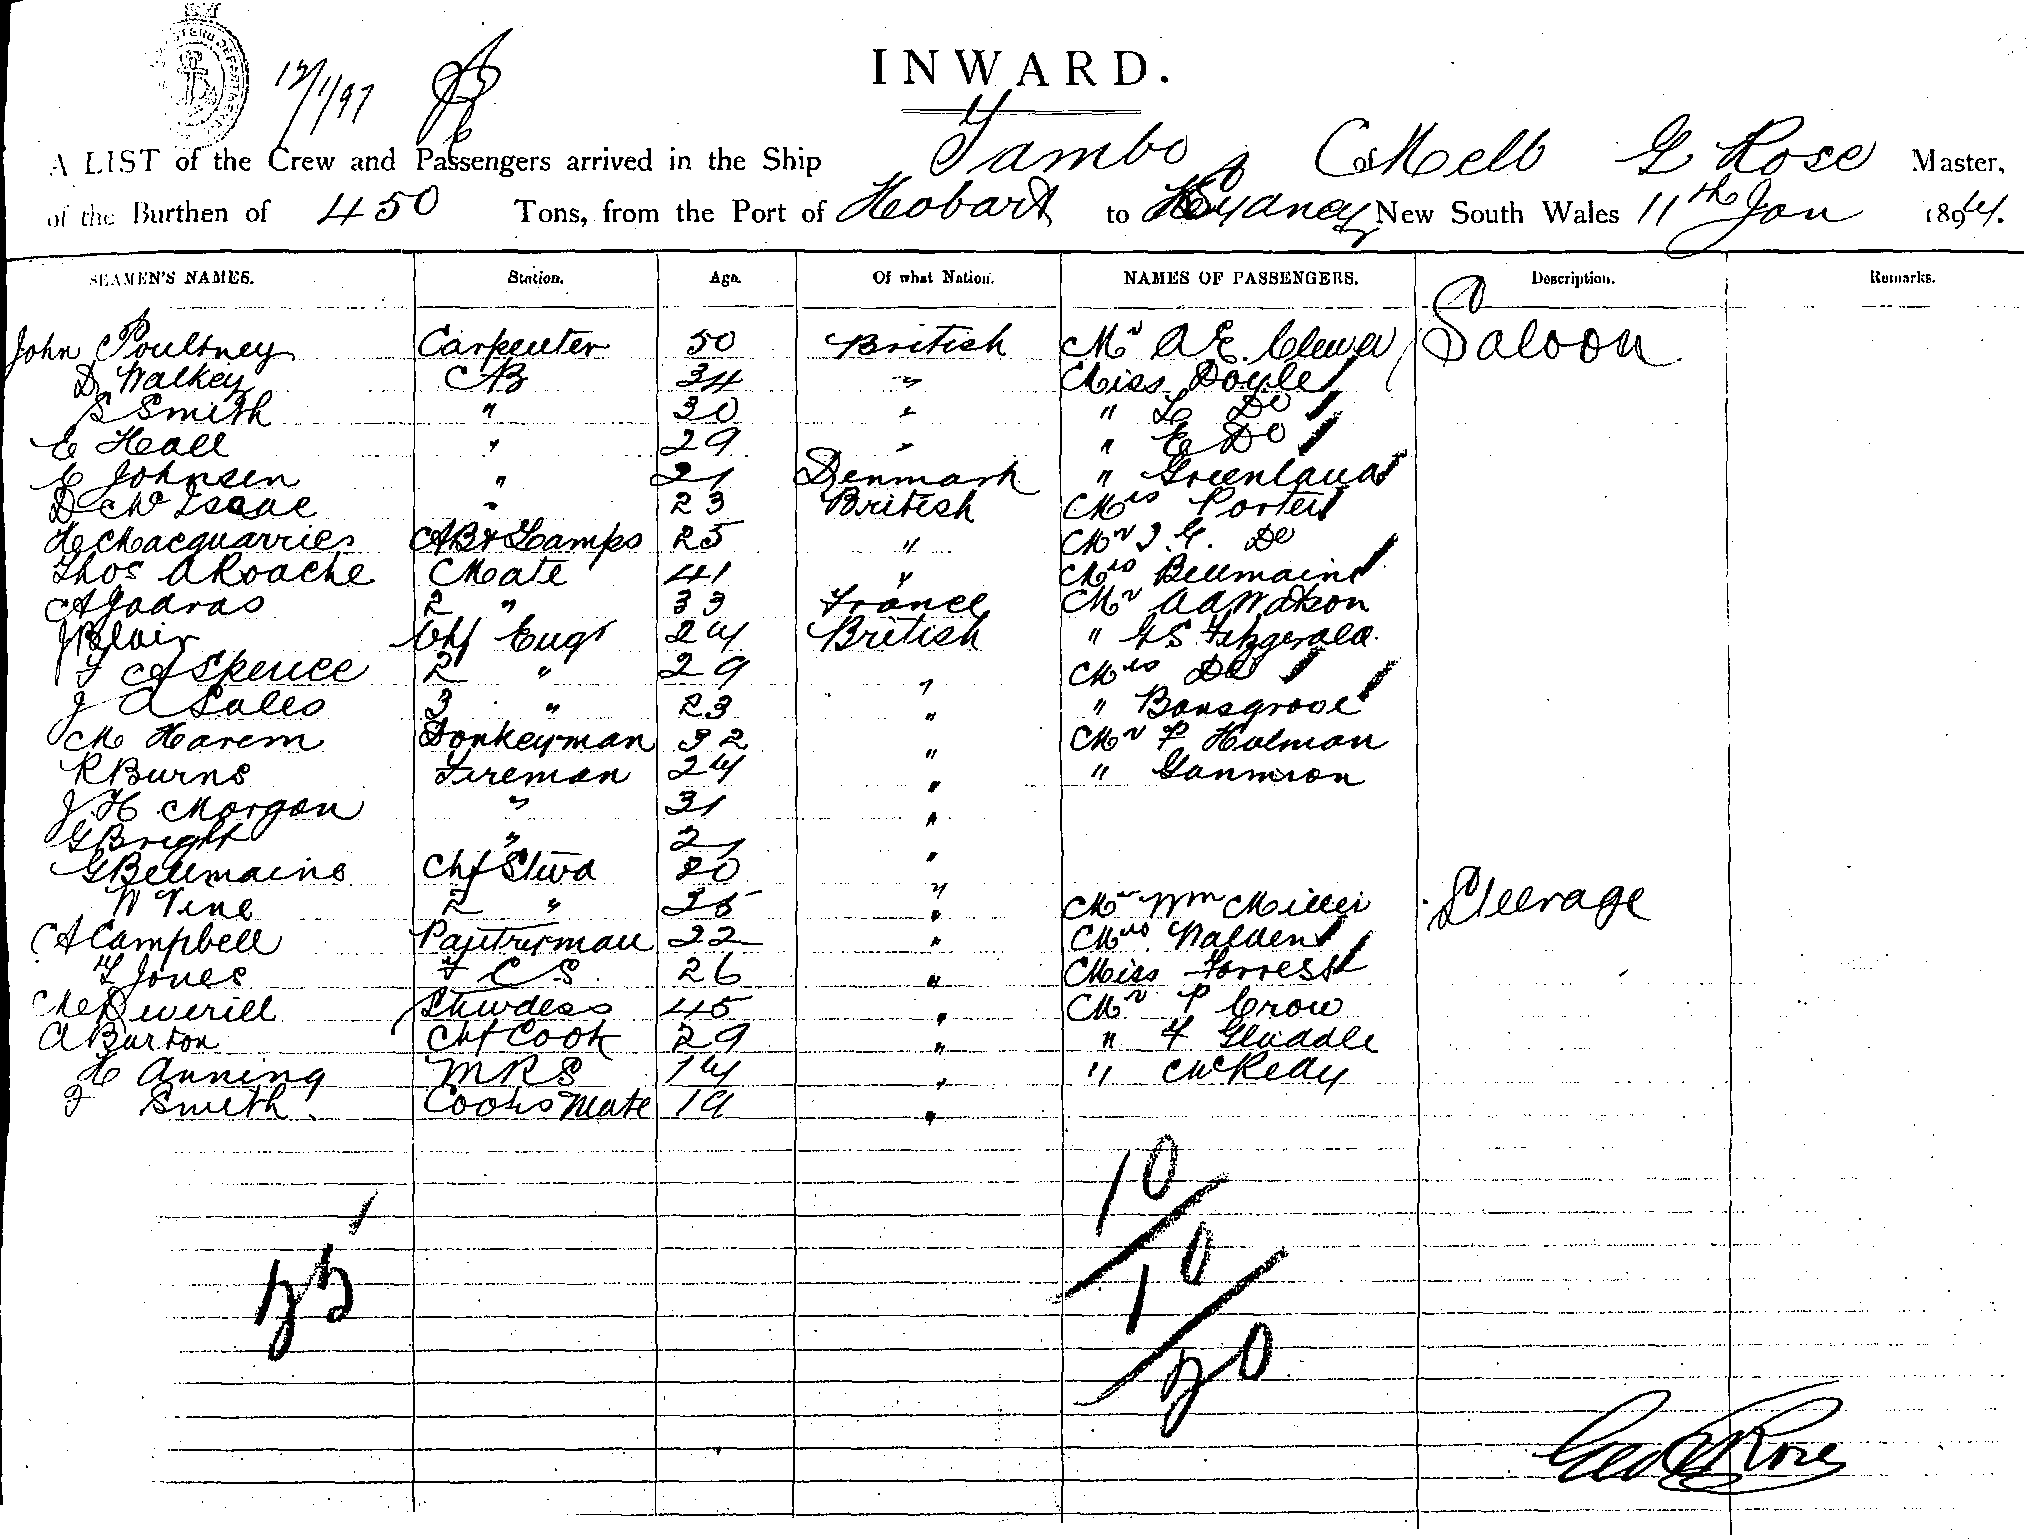 12/1/97
INWARD.
A LIST of the Crew and Passengers arrived in the Ship Tambo of Melb G Rose Master,
of the Burthen of 450 Tons, from the Port of Hobart to Sydney New South Wales 11th Jan 1894.
SEAMEN'S NAMES. Station. Age. Of what Nation. NAMES OF PASSENGERS. Description. Remarks.
John Poultney Carpenter 50 British Mr A E. Saloon
D Walkey AB 34 " Miss Doyle
S Smith " 30 " " L Do
E Hall " 29 " " E Do
E Johnsen " 21 Denmark " Greenland
D McIsaac " 23 British Mrs Porter
H Macquarries AB & Lamps 25 " Mr J. G. Do
Thos A Roache Mate 41 " Mrs Beumains
A Jadras 2 " 33 France Mr A A Watson
J Blair Chf Engr 24 British " G S Fitzgerald.
F A Spence 2 " 29 " Mrs Do
J A Sales 3 " 23 " " Bonsgrove
M Harem Donkeyman 32 " Mr F Holman
R Burns Fireman 24 " "
J H Morgan " 31 "
G Bright " 21 "
G Beumains Chf Stwd 20 "
W Vine 2 " 25 " Mr Wm Miller Steerage
A Campbell Pantryman 22 " Mrs Walden
L Jones F C S 26 " Miss Forrest
M Deverill Stwdess 45 " Mr P Crow
A Burton Chf Cook 29 " " F Gluddle
H Anning MRS 14 " " McRedy
F Smith. Cooks Mate 19 "
10
25 10
20
Geo Rose